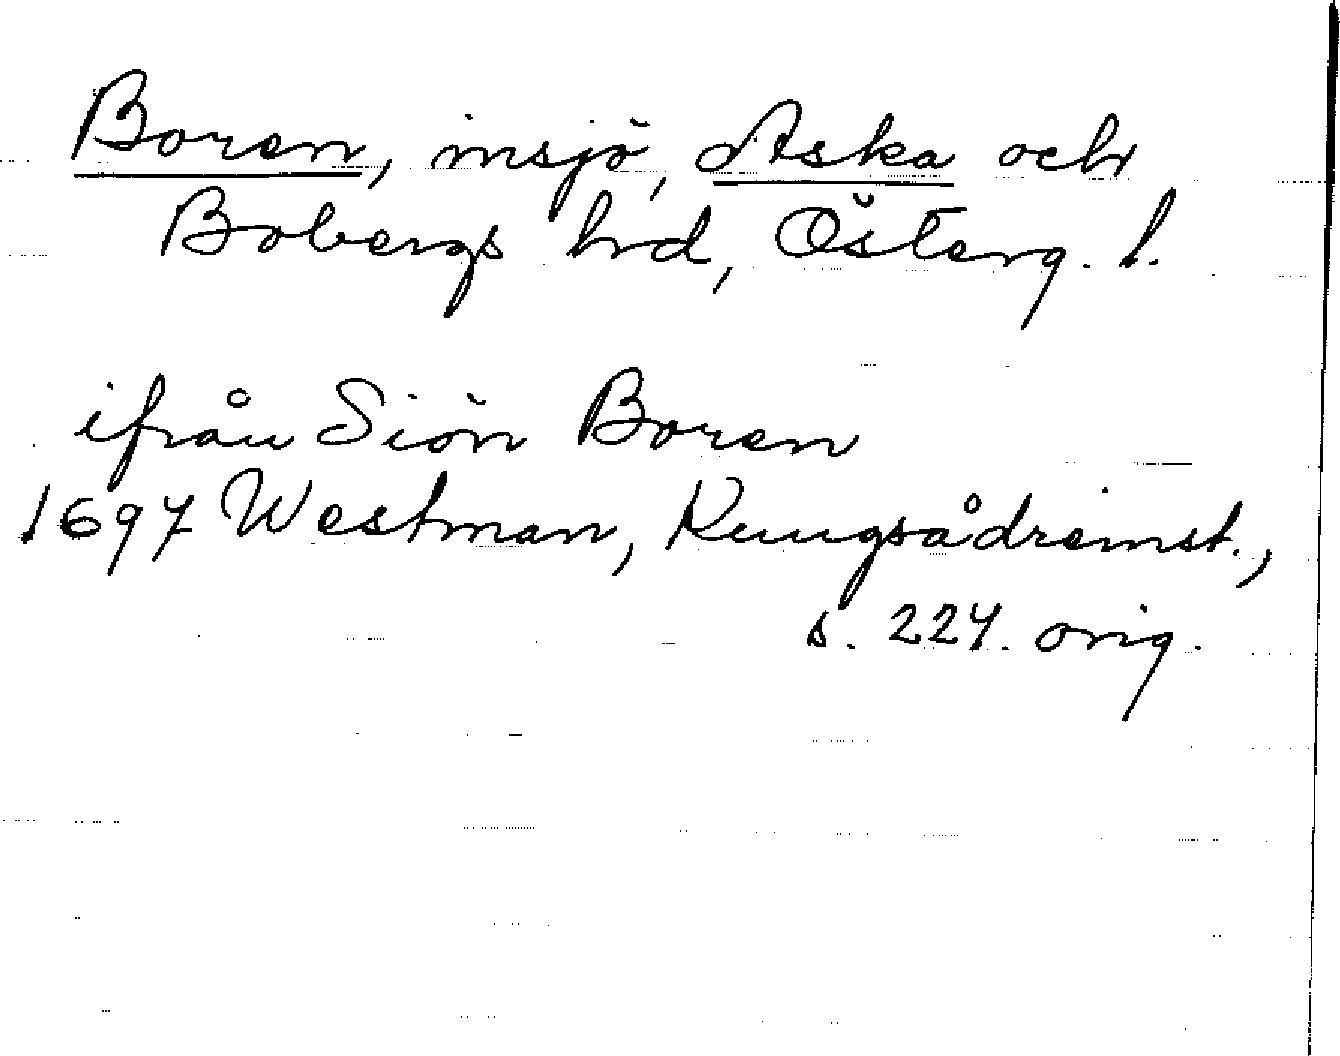 Boren, insjö, Aska och
Bobergs hrd, Österg. l.
ifrån Siön Boren
1697 Westman, Kungsådreinst.,
s. 227. orig.